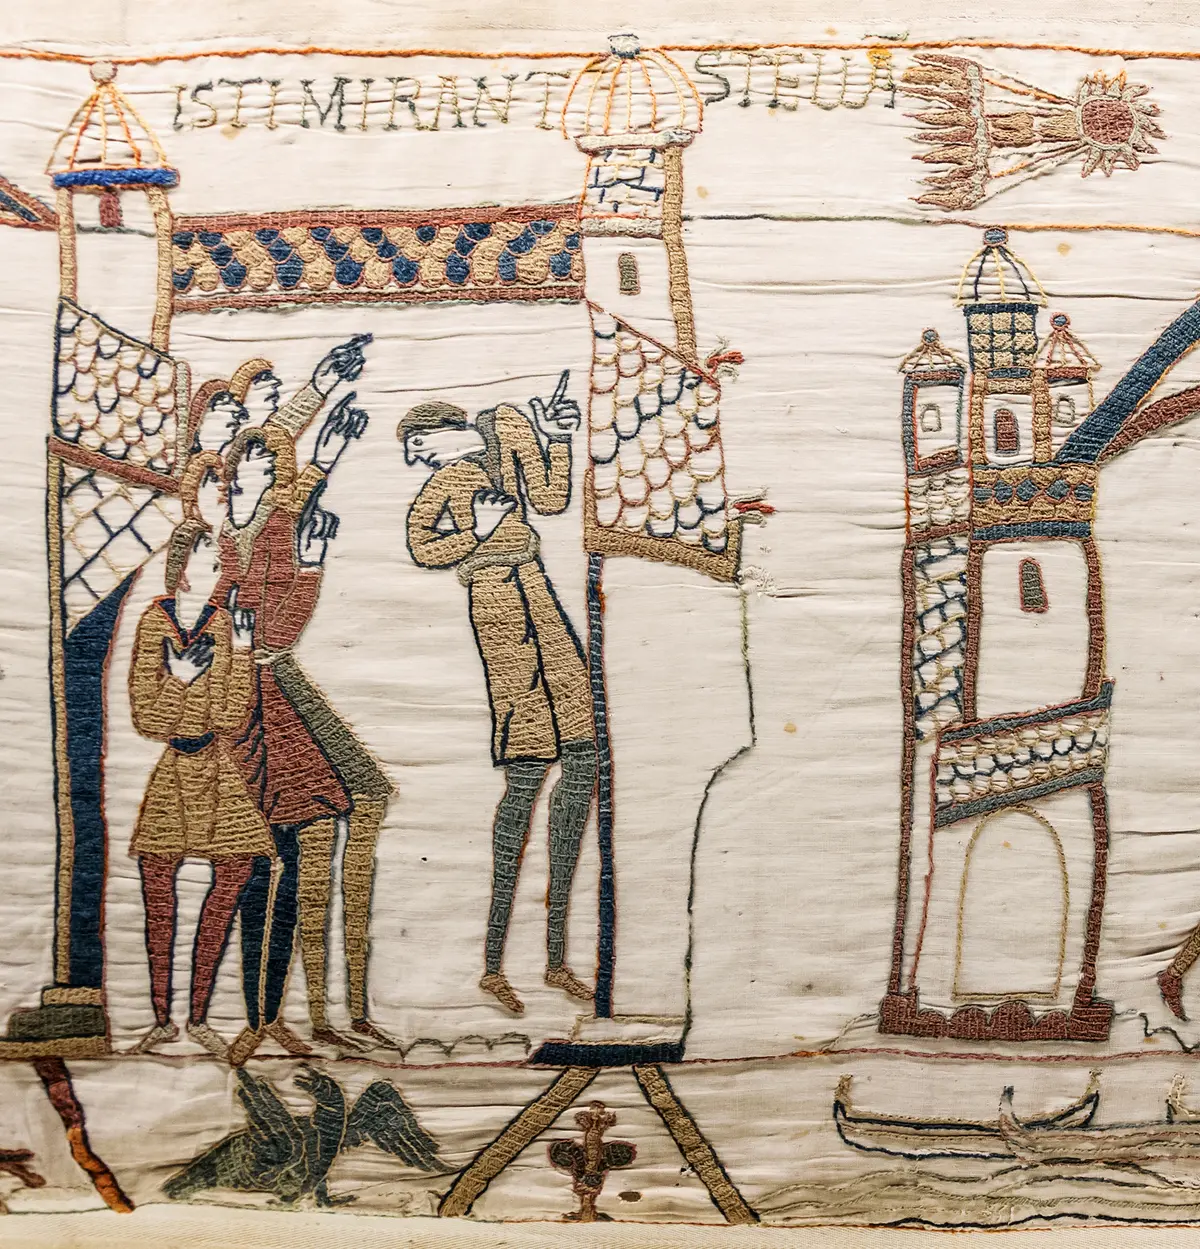 ISTI MIRANT STELLĀ